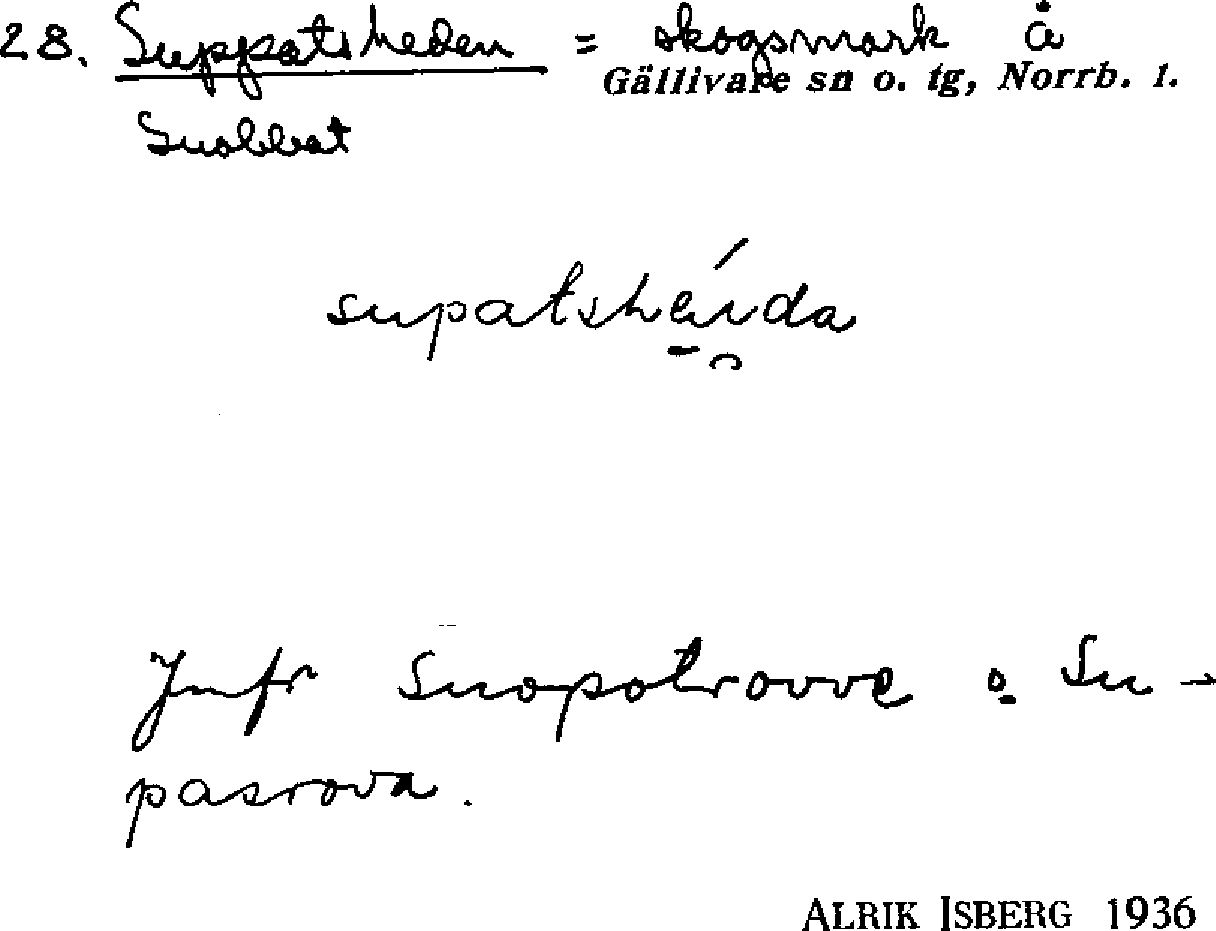 28. Suppatsheden = skogsmark å
Gällivare sn o. tg, Norrb. l.
Suobbat
supatshei̯da
Jmfr Suopotrovve o Su-
pasrova.
ALRIK ISBERG 1936